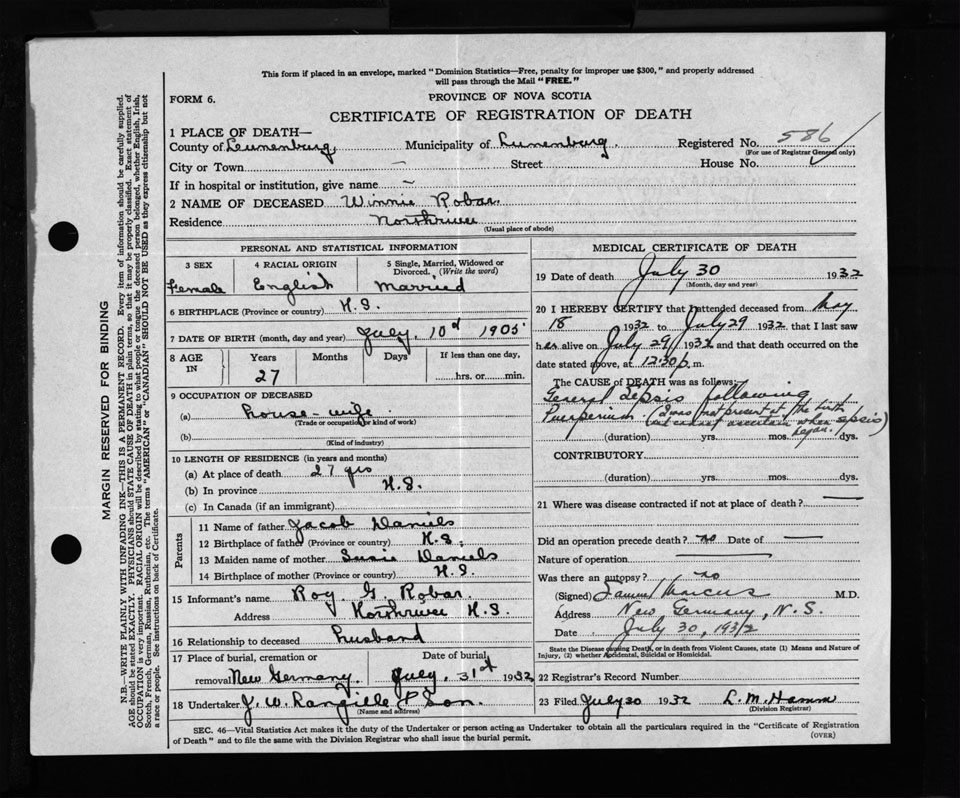 This form if placed in an envelope, marked "Dominion Statistics—Free, penalty for improper use $300," and properly addressed
will pass through the Mail "FREE."
FORM 6.
PROVINCE OF NOVA SCOTIA
CERTIFICATE OF REGISTRATION OF DEATH
1 PLACE OF DEATH—
County of Lunenburg, Municipality of Lunenburg. Registered No. 586
(For use of Registrar General only)
City or Town — Street House No.
If in hospital or institution, give name —
2 NAME OF DECEASED Winnie Robar.
Residence Northriver
(Usual place of abode)
PERSONAL AND STATISTICAL INFORMATION
3 SEX 4 RACIAL ORIGIN 5 Single, Married, Widowed or Divorced. (Write the word)
Female English Married
6 BIRTHPLACE (Province or country) N.S.
7 DATE OF BIRTH (month, day and year) July, 10th 1905
8 AGE IN Years Months Days If less than one day,
27 hrs. or min.
9 OCCUPATION OF DECEASED
(a) house-wife.
(Trade or occupation or kind of work)
(b)
(Kind of industry)
10 LENGTH OF RESIDENCE (in years and months)
(a) At place of death 27 yrs
(b) In province N.S.
(c) In Canada (if an immigrant)
Parents
11 Name of father Jacob Daniels
12 Birthplace of father (Province or country) N.S.
13 Maiden name of mother Susie Daniels
14 Birthplace of mother (Province or country) N.S.
15 Informant's name Roy. G Robar.
Address Northriver N.S.
16 Relationship to deceased husband
17 Place of burial, cremation or removal New Germany. Date of burial July, 31st 1932
18 Undertaker J. W. Langille & Son.
(Name and address)
MEDICAL CERTIFICATE OF DEATH
19 Date of death July 30 1932
(Month, day and year)
20 I HEREBY CERTIFY that I attended deceased from May
18 1932 to July 29 1932, that I last saw
her alive on July 29 1932 and that death occurred on the
date stated above, at 12:30 p. m.
The CAUSE of DEATH was as follows:
General Sepsis following
Puerperium. (I was not present at the birth
and cannot ascertain when sepsis
began.)
(duration) yrs. mos. dys.
CONTRIBUTORY
(duration) yrs. mos. dys.
21 Where was disease contracted if not at place of death? —
Did an operation precede death? no Date of —
Nature of operation —
Was there an autopsy? no
(Signed) Samuel Marcus M.D.
Address New Germany, N.S.
Date July 30, 1932
State the Disease causing Death, or in death from Violent Causes, state (1) Means and Nature of
Injury, (2) whether Accidental, Suicidal or Homicidal.
22 Registrar's Record Number
23 Filed July 30 1932 L. M. Hamm
(Division Registrar)
SEC. 46—Vital Statistics Act makes it the duty of the Undertaker or person acting as Undertaker to obtain all the particulars required in the "Certificate of Registration
of Death" and to file the same with the Division Registrar who shall issue the burial permit.
(OVER)
MARGIN RESERVED FOR BINDING
N.B.—WRITE PLAINLY WITH UNFADING INK—THIS IS A PERMANENT RECORD. Every item of information should be carefully supplied.
AGE should be stated EXACTLY. PHYSICIANS should STATE CAUSE OF DEATH in plain terms, so that it may be properly classified. Exact statement of
OCCUPATION is very important. RACIAL ORIGIN will be described by stating to what people or tongue the deceased person belonged, whether English, Irish,
Scotch, French, German, Russian, Ruthenian, etc. The terms "AMERICAN" or "CANADIAN" SHOULD NOT BE USED as they express citizenship but not
a race or people. See instructions on back of Certificate.